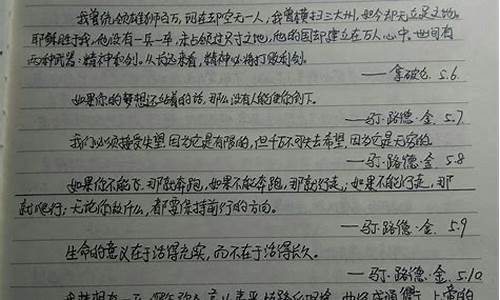 我曾统领雄师百万,现在却空无一人,我曾横扫三大州,如今却无立足之地。
耶稣胜于我,他没有一兵一卒,未占领过尺寸之地,他的国却建立在万人心中。世间有
两种武器:精神和剑。从长远来看,精神必将打败利剑。
——拿破仑 5.6
如果你的梦想还站着的话,那么没有人能使你倒下。
——马丁·路德·金. 5.7
我们必须接受失望,因为它是有限的,但千万不可失去希望,因为它是无穷的。
——马丁·路德·金 5.8
如果你不能飞,那就奔跑,如果不能奔跑,那就行走;如果不能行走,那
就爬行;无论你做什么,都要保持前行的方向。
——马丁·路德·金. 5.9
生命的意义在于活得充实,而不在于活得长久。
——马丁·路德·金. 5.10
我梦想有一天,